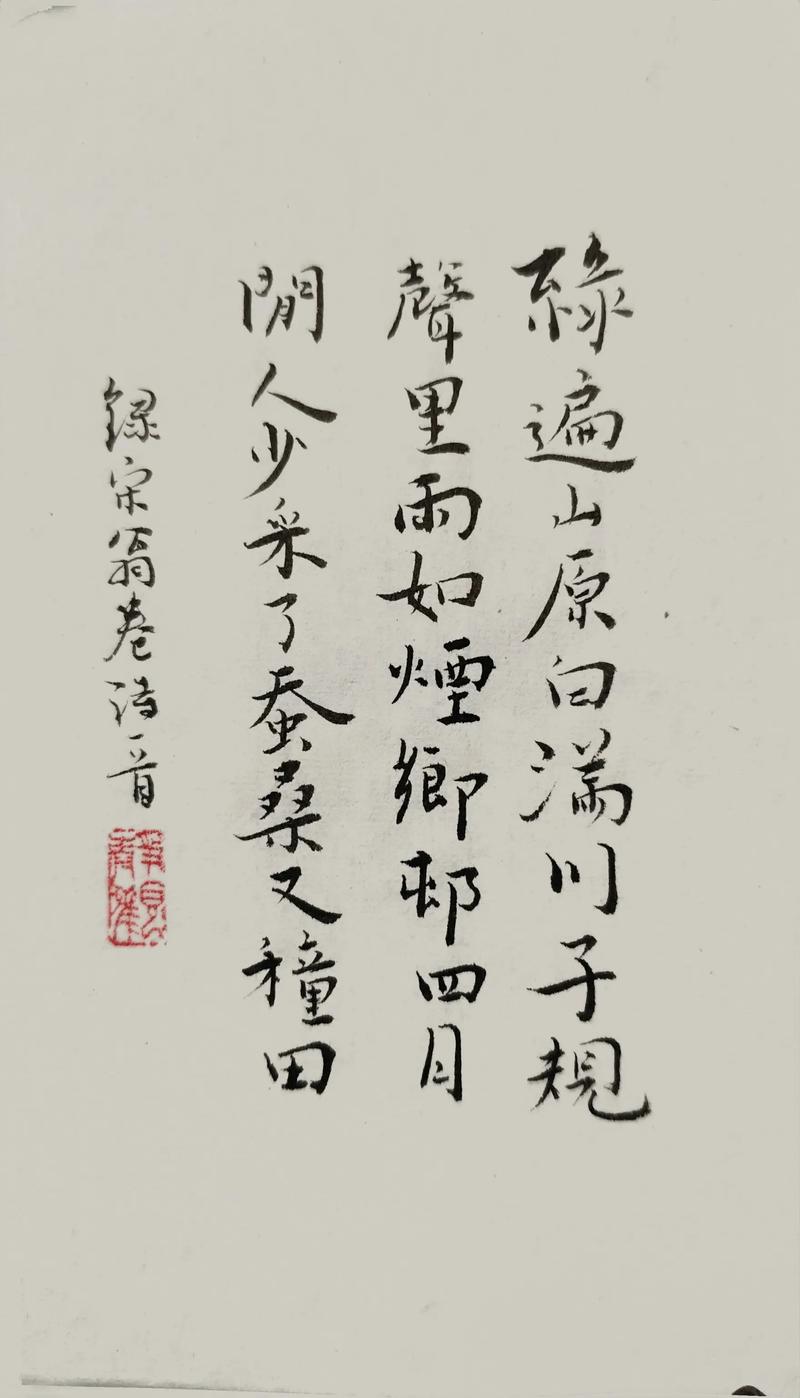 綠遍山原白滿川子規
聲里雨如煙鄉邨四月
閒人少采了蚕桑又穜田
錄宋翁卷詩一首
靜觀